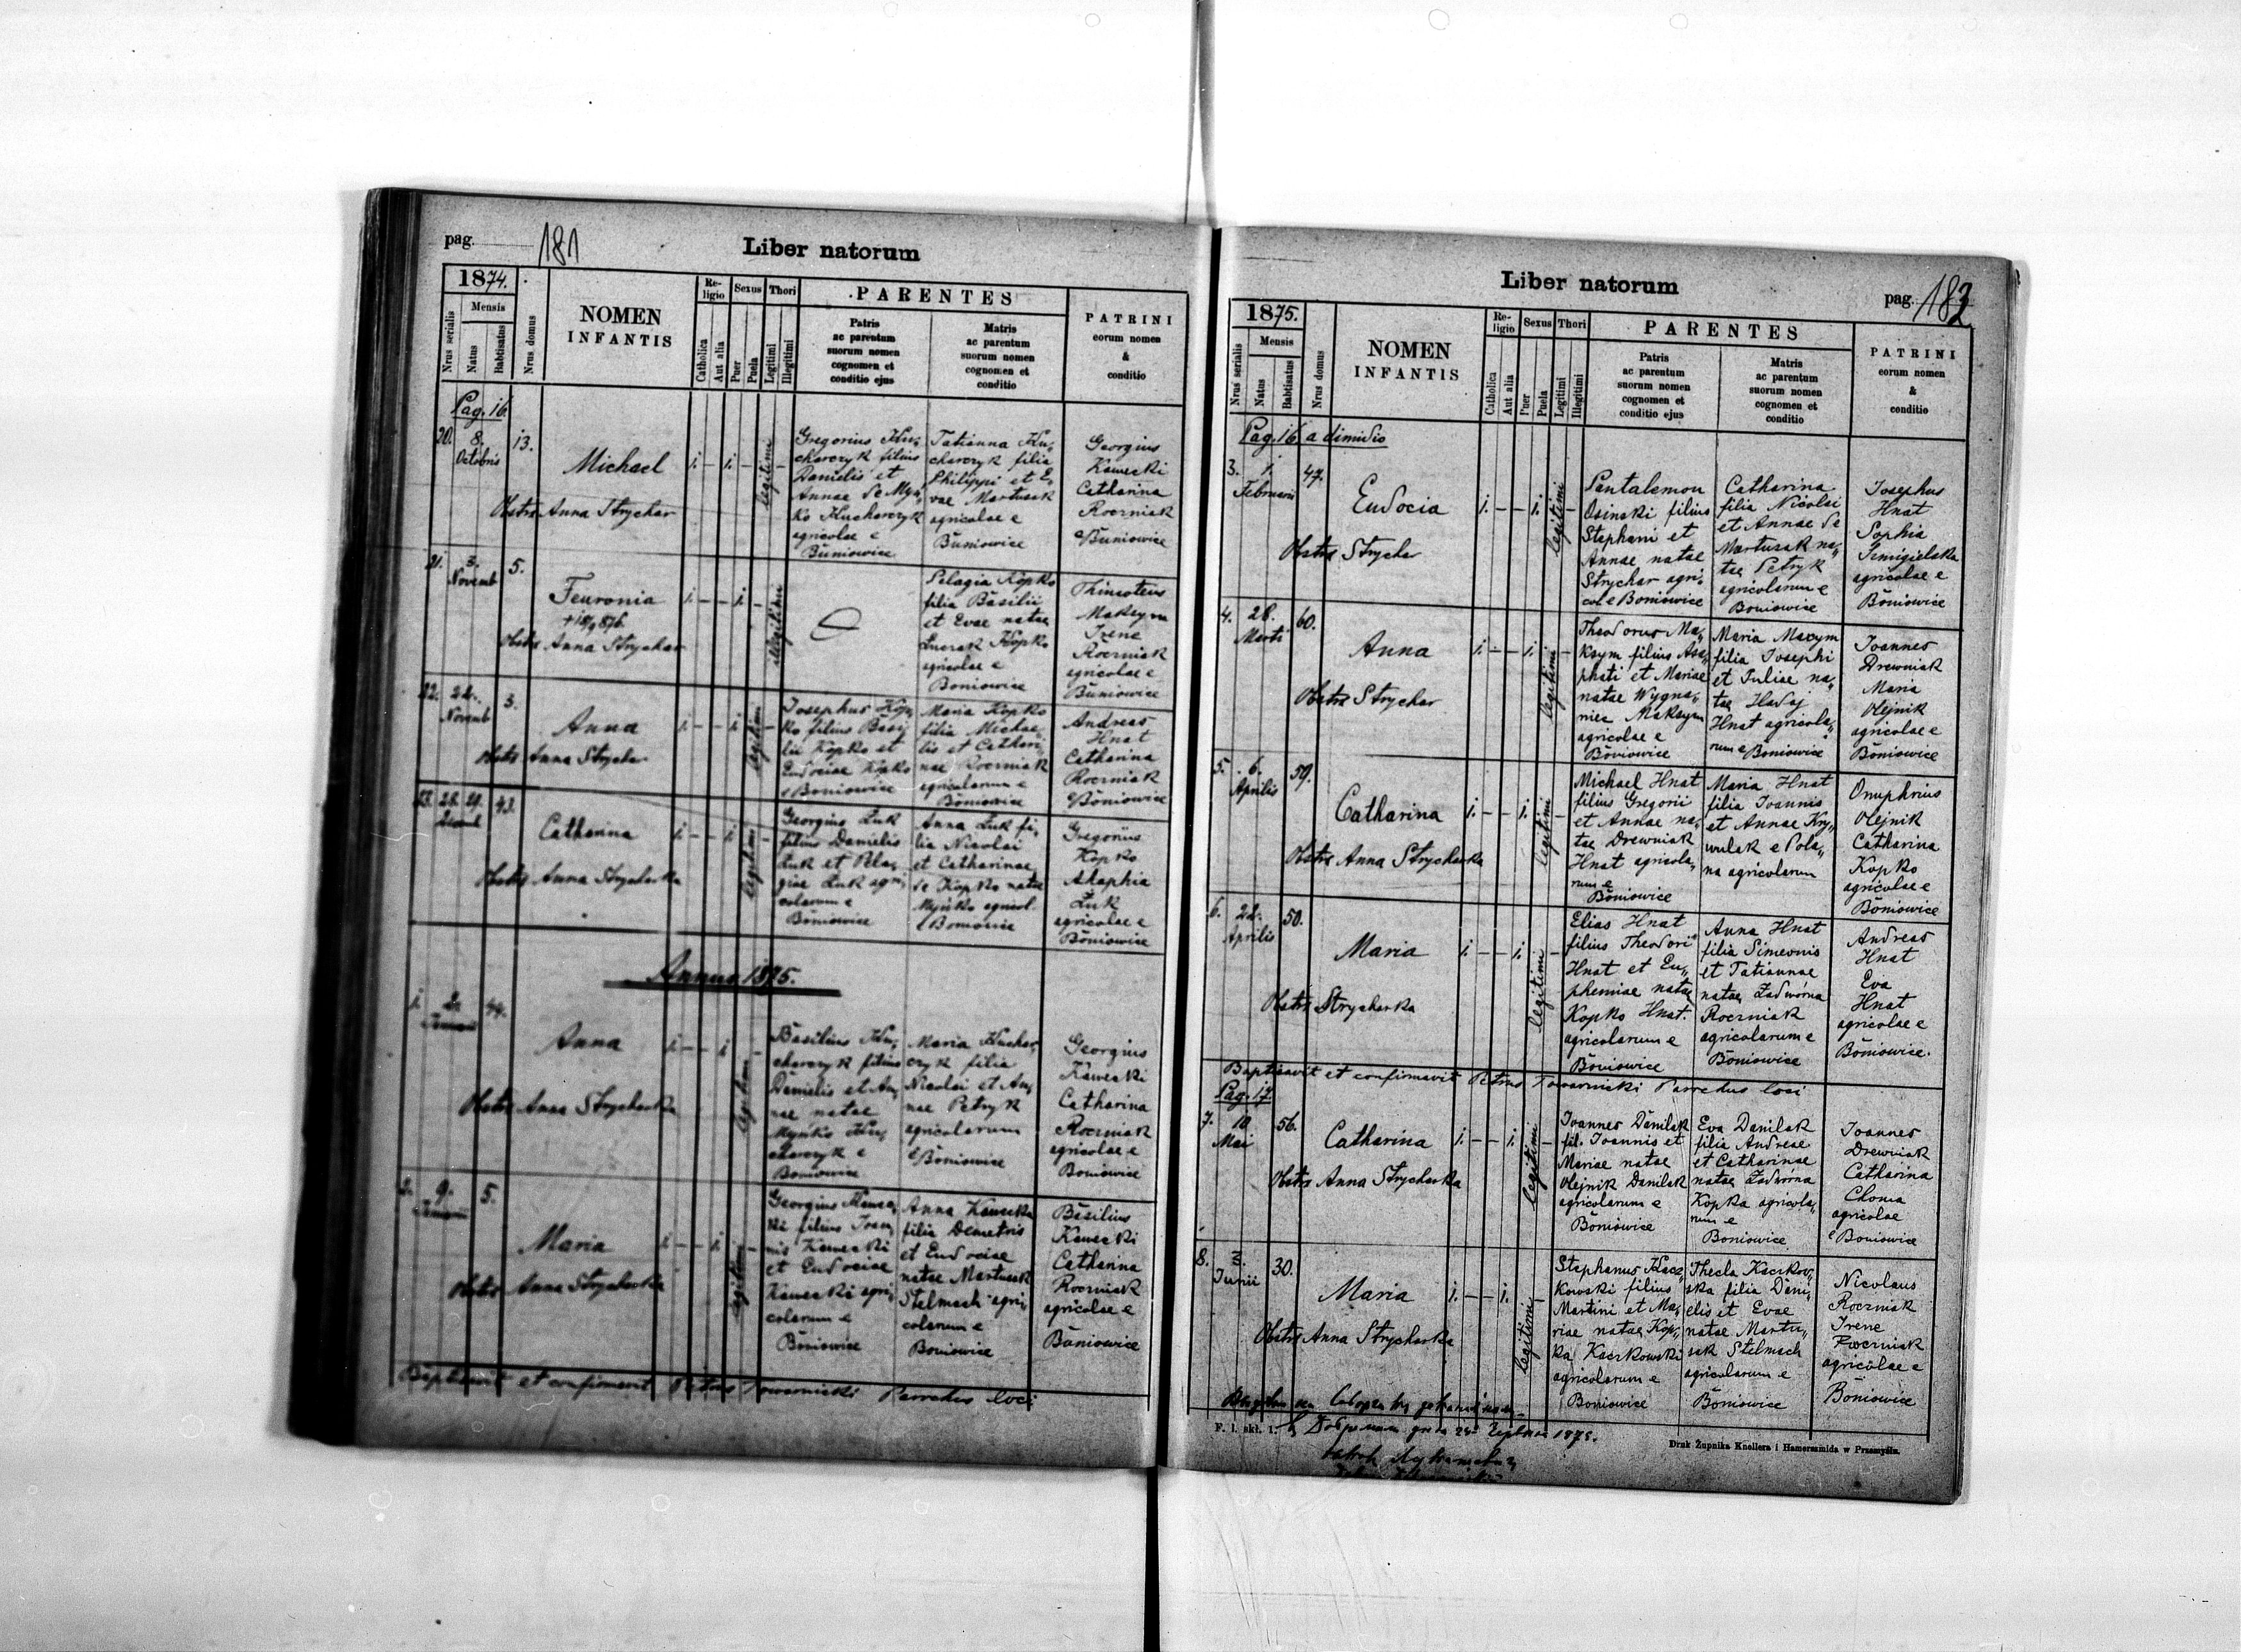 pag. 181
Liber natorum
1874.
Nrus serialis
Mensis
Natus
Babtisatus
Nrus domus
NOMEN
INFANTIS
Re-
ligio
Catholica
Aut alia
Sexus
Puer
Puela
Thori
Legitimi
Illegitimi
PARENTES
Patris
ac parentum
suorum nomen
cognomen et
conditio ejus
Matris
ac parentum
suorum nomen
cognomen et
conditio
PATRINI
eorum nomen
&
conditio
Pag. 16
20.
8.
Octobris
13.
Michael
Obstrx Anna Strychar
1. – 1. –
legitimi
Gregorius Ku„
charczyk filius
Danielis et
Annae de Myń„
ko Kucharczyk
agricolae e
Buniowice
Tatianna Ku„
charczyk filia
Philippi et E„
vae Martuszak
agricolae e
Buniowice
Georgius
Kawecki
Catharina
Roczniak
e Buniowice
21.
3.
Novemb
5.
Feuronia
Obstrx Anna Strychar
1. – – 1. –
illegitimi
Pelagia Kopko
filia Basilii
et Evae natae
Kopko
agricolae e
Boniowice
Thimoteus
Maksym
Irene
Roczniak
agricolae e
Buniowice
22.
22.
Novemb
3.
Anna
Obstrx Anna Strychar
1. – – 1.
legitimi
Josephus Kop„
ko filius Basi„
lii Kopko et
Eudociae Kopko
e Boniowice
Maria Kopko
filia Michae„
lis et Cathari„
nae Roczniak
agricolarum e
Boniowice
Andreas
Hnat
Catharina
Roczniak
e Boniowice
23.
28. 29.
43.
Catharina
Obstrx Anna Strycharka
1. – – 1. –
legitimi
Georgius Łuk
filius Danielis
Łuk et Pela„
giae Łuk agri„
colarum e
Boniowice
Anna Łuk fi„
lia Nicolai
et Catharinae
de Kopko natae
Myńko agricol.
e Boniowice
Gregorius
Kopko
Ahaphia
Łuk
agricolae e
Boniowice
Annus 1875.
1.
2.
Januarii
44.
Anna
Obstrx Anna Strycharka
1. – – 1. –
legitimi
Basilius Ku„
charczyk filius
Danielis et An„
nae natae
Myńko Ku„
charczyk e
Boniowice
Maria Kuchar„
czyk filia
Nicolai et An„
nae Petryk
agricolarum
e Boniowice
Georgius
Kawecki
Catharina
Roczniak
agricolae e
Boniowice
2.
9.
Januarii
5.
Maria
Obstrx Anna Strycharka
1. – – 1. –
legitimi
Georgius Kawec„
ki filius Joan„
nis Kawecki
et Eudociae
Kawecki agri„
colarum e
Boniowice
Anna Kawecka
filia Demetrii
et Eudociae
natae Martuszak
Stelmach agri„
colarum e
Boniowice
Basilius
Kawecki
Catharina
Roczniak
agricolae e
Boniowice
Baptisavit et confirmavit Petrus Towarnicki Parochus loci
Liber natorum
pag. 182
1875.
Nrus serialis
Mensis
Natus
Babtisatus
Nrus domus
NOMEN
INFANTIS
Re-
ligio
Catholica
Aut alia
Sexus
Puer
Puela
Thori
Legitimi
Illegitimi
PARENTES
Patris
ac parentum
suorum nomen
cognomen et
conditio ejus
Matris
ac parentum
suorum nomen
cognomen et
conditio
PATRINI
eorum nomen
&
conditio
Pag. 16 a dimidio
3.
1.
Februarii
47.
Eudocia
Obstrx Strychar
1. – – 1. –
legitimi
Pantalemon
Osinski filius
Stephani et
Annae natae
Strychar agri„
col e Boniowice
Catharina
filia Nicolai
et Annae de
Martuszak na„
tae Petryk
agricolarum e
Boniowice
Josephus
Hnat
Sophia
agricolae e
Boniowice
4.
28.
Marti
60.
Anna
Obstrx Strychar
1. – – 1. –
legitimi
Theodorus Ma„
ksym filius Asa„
phati et Mariae
natae Wygna„
niec Maksym
agricolae e
Boniowice
Maria Maxym
filia Josephi
et Juliae na„
tae Hadaj
Hnat agricola„
rum e Boniowice
Joannes
Drewniak
Maria
Olejnik
agricolae e
Boniowice
5.
6.
Aprilis
59.
Catharina
Obstrx Anna Strycharka
1. – – 1. –
legitimi
Michael Hnat
filius Gregorii
et Annae na„
tae Drewniak
Hnat agricola„
rum e
Boniowice
Maria Hnat
filia Joannis
et Annae Kry„
wulak e Pola„
na agricolarum
Onuphrius
Olejnik
Catharina
Kopko
agricolae e
Boniowice
6.
22.
Aprilis
50.
Maria
Obstrx Strycharka
1. – – 1. –
legitimi
Elias Hnat
filius Theodori
Hnat et Eu„
phemiae natae
Kopko Hnat.
agricolarum e
Boniowice
Anna Hnat
filia Simeonis
et Tatiannae
natae Zadwórna
Roczniak
agricolarum e
Boniowice
Andreas
Hnat
Eva
Hnat
agricolae e
Boniowice.
Baptisavit et confirmavit Petrus Towarnicki Parochus loci
Pag. 17
7.
10
Mai
56.
Catharina
Obstrx Anna Strycharka
1. – – 1. –
legitimi
Joannes Danilak
fil. Joannis et
Mariae natae
Olejnik Danilak
agricolarum e
Boniowice
Eva Danilak
filia Andreae
et Catharinae
natae Zadwórna
Kopka agricola„
rum e
Boniowice
Joannes
Drewniak
Catharina
Choma
agricolae
e Boniowice
8.
3.
Junii
30.
Maria
Obstrx Anna Strycharka
1. – – 1. –
legitimi
Stephanus Kacz„
kowski filius
Martini et Ma„
riae natae Kop„
ka Kaczkowski
agricolarum e
Boniowice
Thecla Kaczkow„
ska filia Dani„
elis et Evae
natae Martu„
szak Stelmach
agricolarum e
Boniowice
Nicolaus
Roczniak
Irene
Roczniak
agricolae e
Boniowice
F. l. skł. 1.
1875.
Druk Żupnika Knollera i Hamerszmida w Przemyślu.